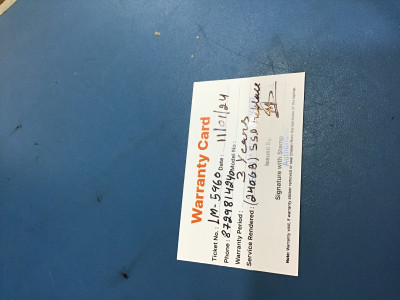 Warranty Card
Ticket No.: LM-5960 Date: 11/01/24
Phone: 8729814240 Model No:
Warranty Period: 3 Years
Service Rendered: (240GB) SSD replace
Signature with Stamp
Note: Warranty void, if warranty sticker removed or